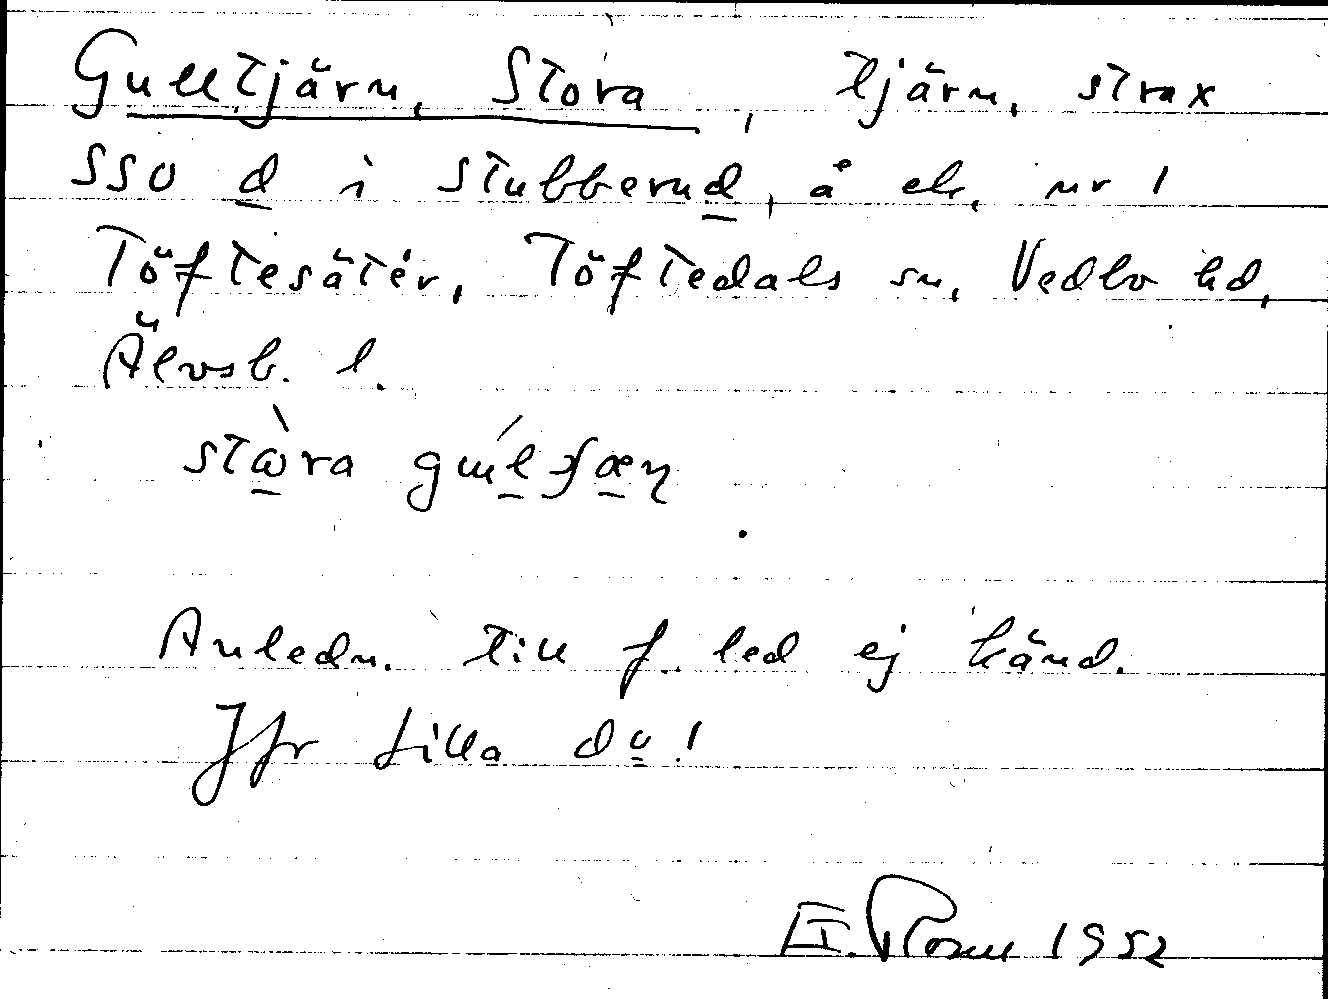 Gulltjärn, Stora, tjärn, strax
SSO d i Stubberud, å ek. nr 1
Töftesäter, Töftedals sn, Vedbo hd,
Älvsb. l.
Anledn. till f. led ej känd.
Jfr Lilla do!
1952